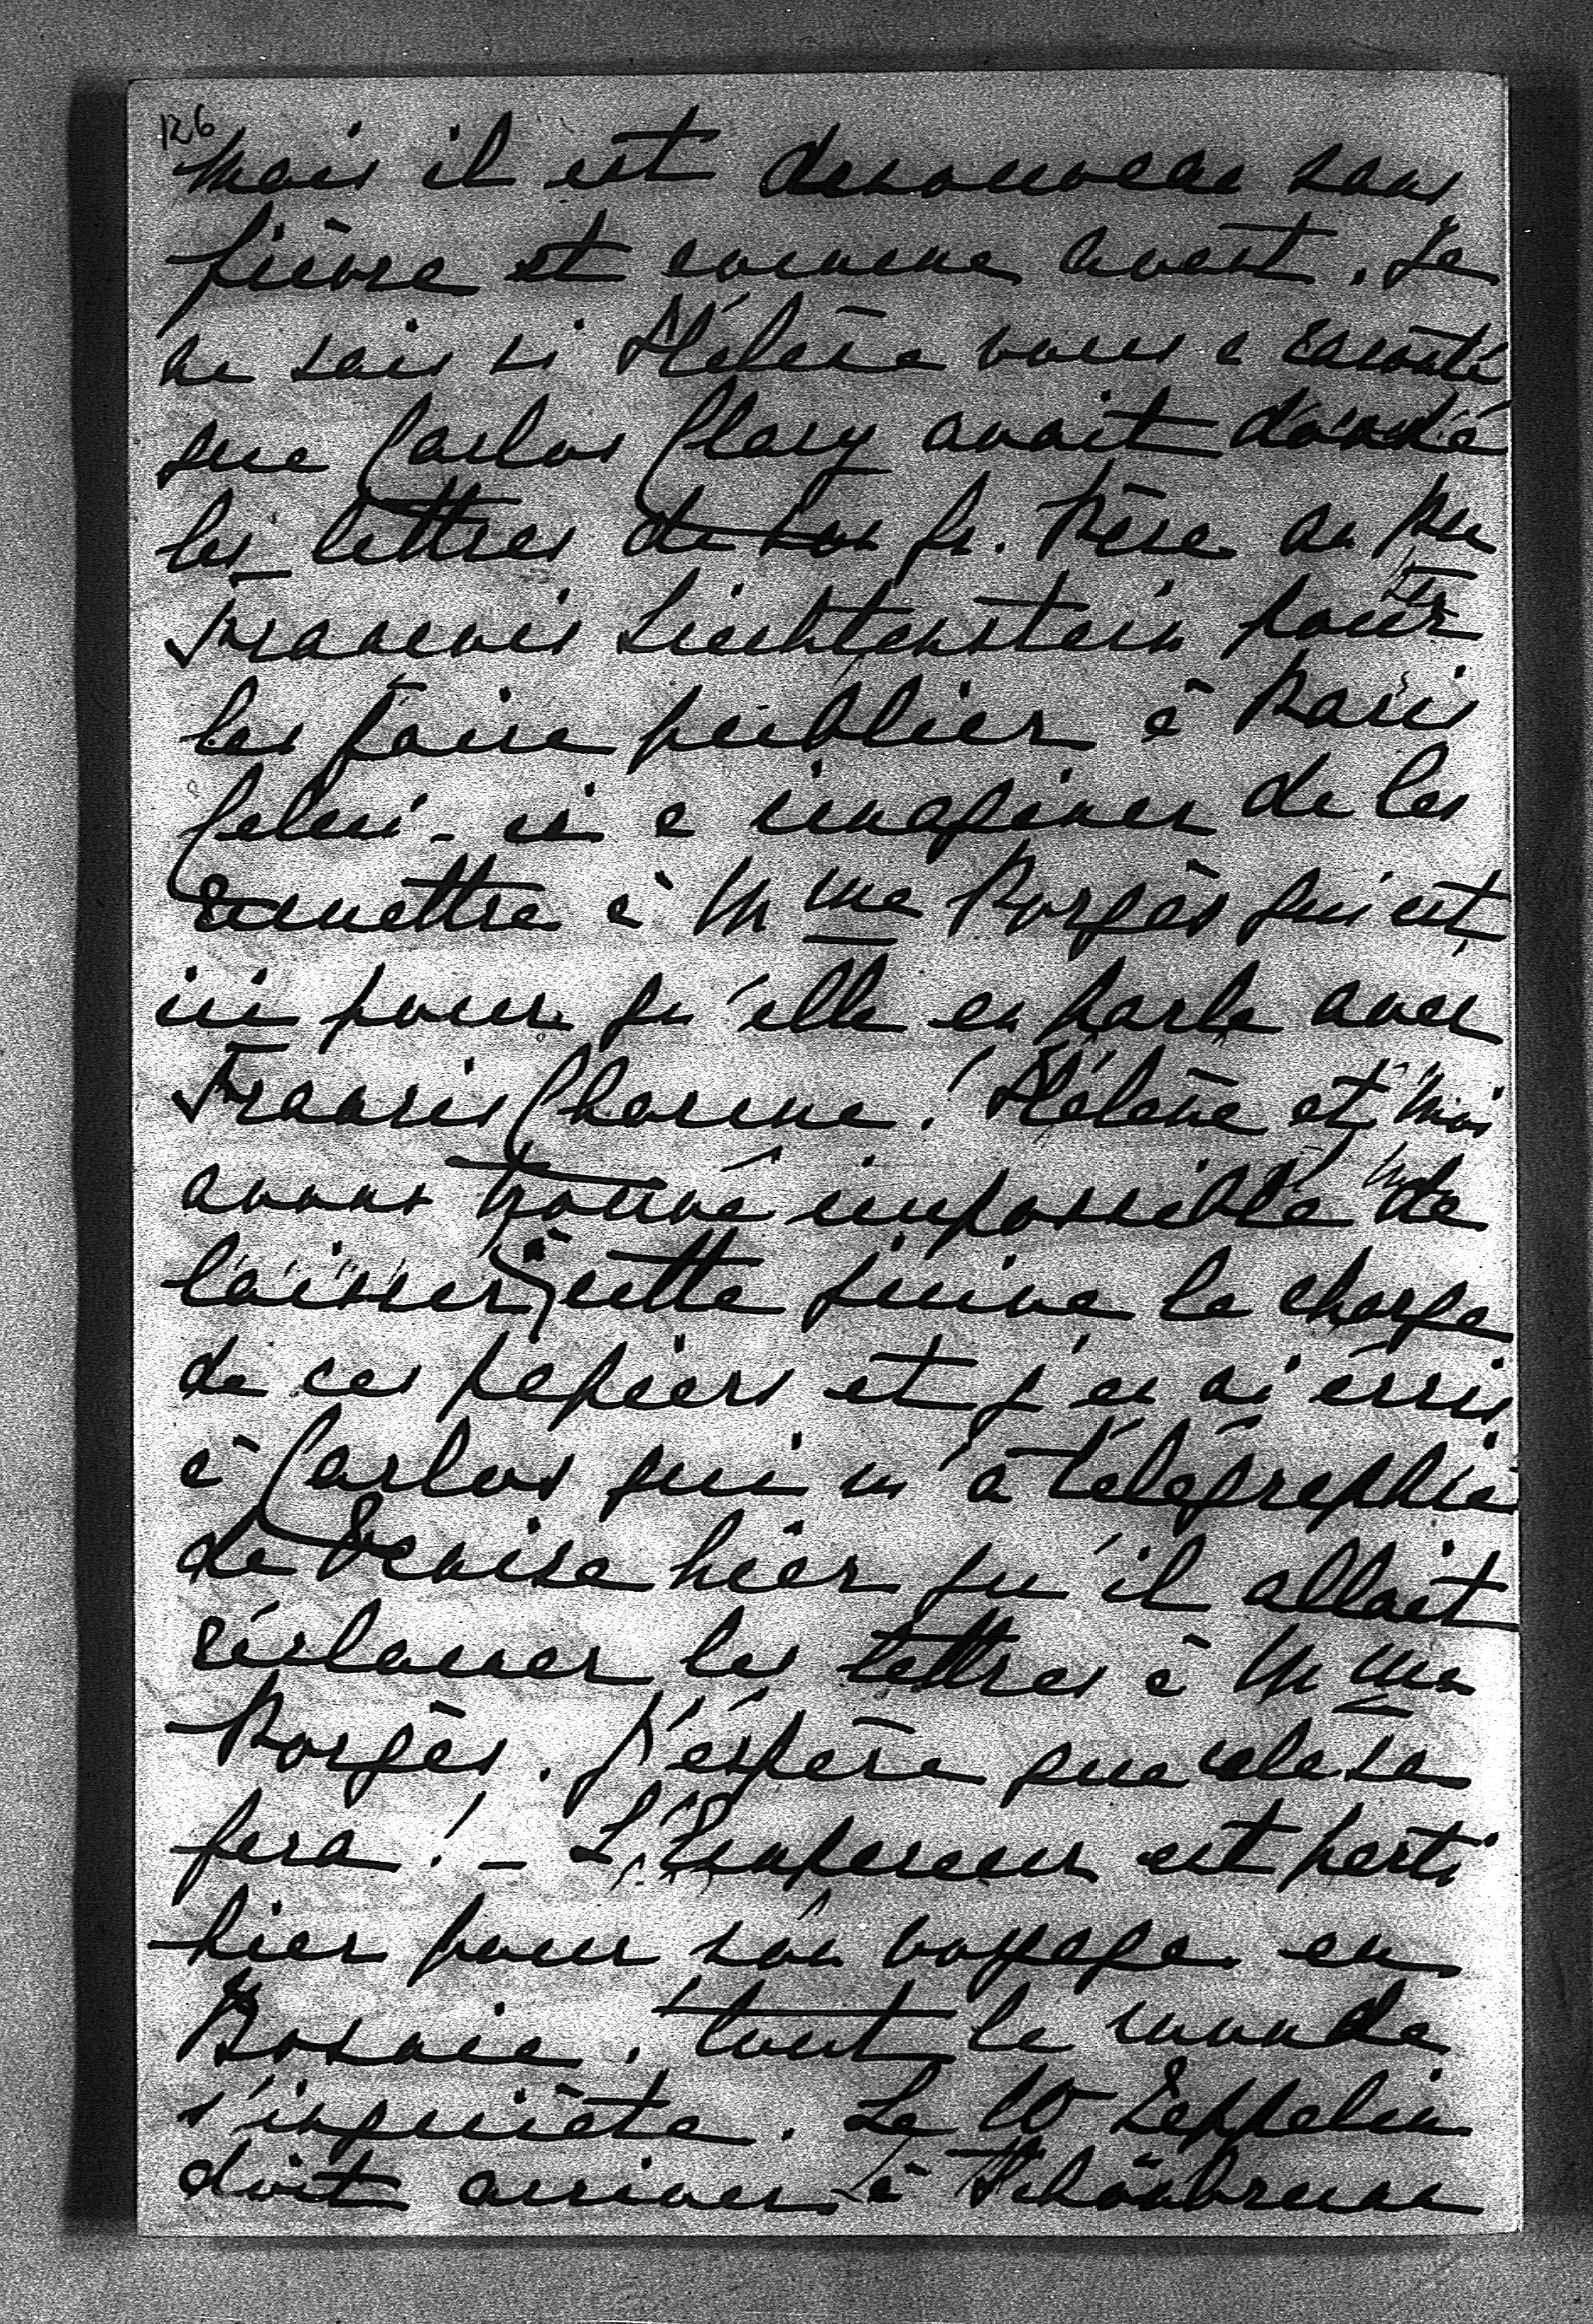 126
mais il est de nouveau sans
fièvre et comme avant. Je
ne sais si Hélène vous a raconté
que Carlos Clary avait donné
les lettres de son gr. Père au Pce
François Liechtenstein pour
les faire publier à Paris
Celui-ci a imaginer de les
remettre à Mme Porgès qui est
ici pour qu'elle en parle avec
Francis Charme! Hélène et moi
avons trouvé impossible de
laisser à cette juive la charge
de ces papiers et j'en ai écris
à Carlos qui m'a télégraphié
de Venise hier qu'il allait
réclamer les lettres à Mme
Porgès. J'espère que cela se
fera! – L'Empereur est parti
hier pour son voyage en
Bosnie. Tout le monde
s'inquiète. Le Zeppelin
doit arriver à Schönbrunn